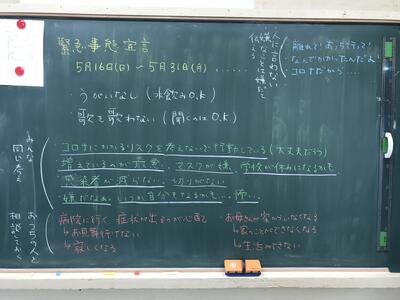 緊急事態宣言
5月16日(日) ～ 5月31日(月) ......
・うがいなし (水飲みO.K)
・歌を歌わない (聞くのはO.K)
人に言わない
嫌なことは嫌だて
伝える
離れて！あっち行って！
なんでかかったんだよ
コロナだから…
みんな
同じ考え
コロナにかかるリスクを考えないで行動している(大丈夫だろう)
増えているのが最悪、マスクが嫌、学校が休みになるかも
感染者が減らない、切りがない
嫌だなぁ、いつか自分もなるかも…怖い。
おうちの人と
相談しておく
病院に行く 症状が出るのが心配
↳お見舞行けない
↳寂しくなる
お母さんが家からいなくなる
↳家のことができなくなる
↳生活できない